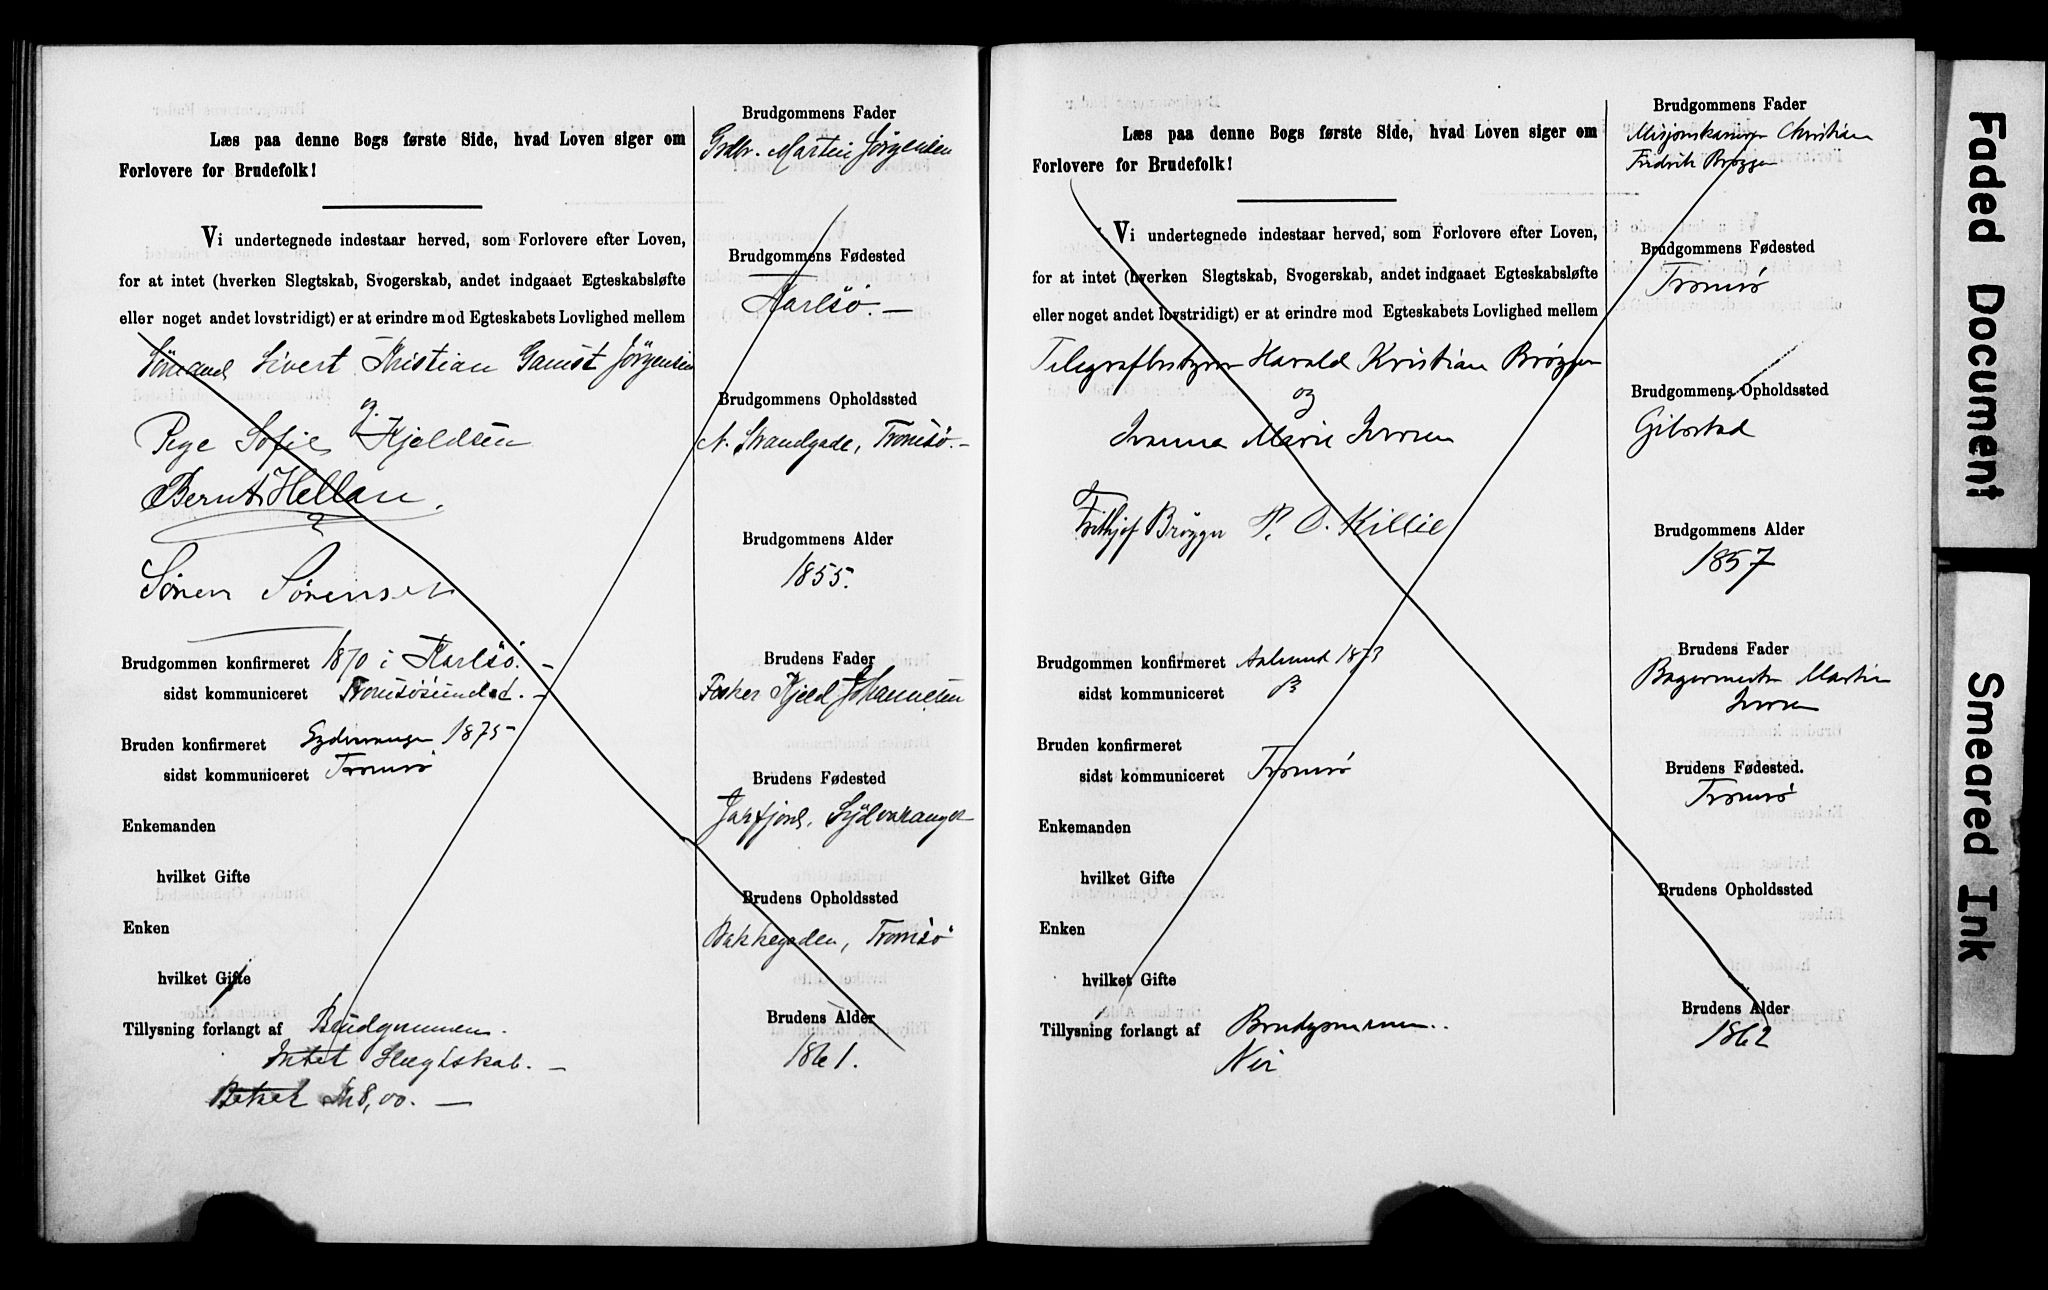 Læs paa denne Bogs første Side, hvad Loven siger om
Forlovere for Brudefolk!
Vi undertegnede indestaar herved, som Forlovere efter Loven,
for at intet (hverken Slegtskab, Svogerskab, andet indgaaet Egteskabsløfte
eller noget andet lovstridigt) er at erindre mod Egteskabets Lovlighed mellem
Sömand Sivert Kristian Gamst Jörgensen
og
Pege Sofie Kjeldsen
Bernt Hellan.
Sören Sörensen
Brudgommen konfirmeret 1870 i Karlsö. -
sidst kommuniceret Tromsösundet. -
Bruden konfirmeret Sydvaranger 1875-
sidst kommuniceret Tromsö
Enkemanden
hvilket Gifte
Enken
hvilket Gifte
Tillysning forlangt af Brudgommen.
Intet Slegtskab. -
Betalt Kr 8,00. -
Brudgommens Fader
Grdbr. Martin Jörgensen
Brudgommens Fødested
Karlsö. -
Brudgommens Opholdssted
N. Strandgade, Tromsö. -
Brudgommens Alder
1855.
Brudens Fader
Fisker Kjeld Johannesen
Brudens Fødested
Jarfjord, Sydvaranger
Brudens Opholdssted
Bakkegaden, Tromsö
Brudens Alder
1861.
Læs paa denne Bogs første Side, hvad Loven siger om
Forlovere for Brudefolk!
Vi undertegnede indestaar herved, som Forlovere efter Loven,
for at intet (hverken Slegtskab, Svogerskab, andet indgaaet Egteskabsløfte
eller noget andet lovstridigt) er at erindre mod Egteskabets Lovlighed mellem
Telegrafbestyrer Harald Kristian Brøgger
og
Ivanna Marie Iversen
Frithjof Brøgger P. O. Killie
Brudgommen konfirmeret Aalesund 1873
sidst kommuniceret
Bruden konfirmeret
sidst kommuniceret Tromsø
Enkemanden
hvilket Gifte
Enken
hvilket Gifte
Tillysning forlangt af Brudgommen.
Nei
Brudgommens Fader
Christian
Fredrik Brøgger
Brudgommens Fødested
Tromsø
Brudgommens Opholdssted
Gibostad
Brudgommens Alder
1857
Brudens Fader
Bagermester Martin
Iversen
Brudens Fødested.
Tromsø
Brudens Opholdssted
Brudens Alder
1862
Faded Document
Smeared Ink